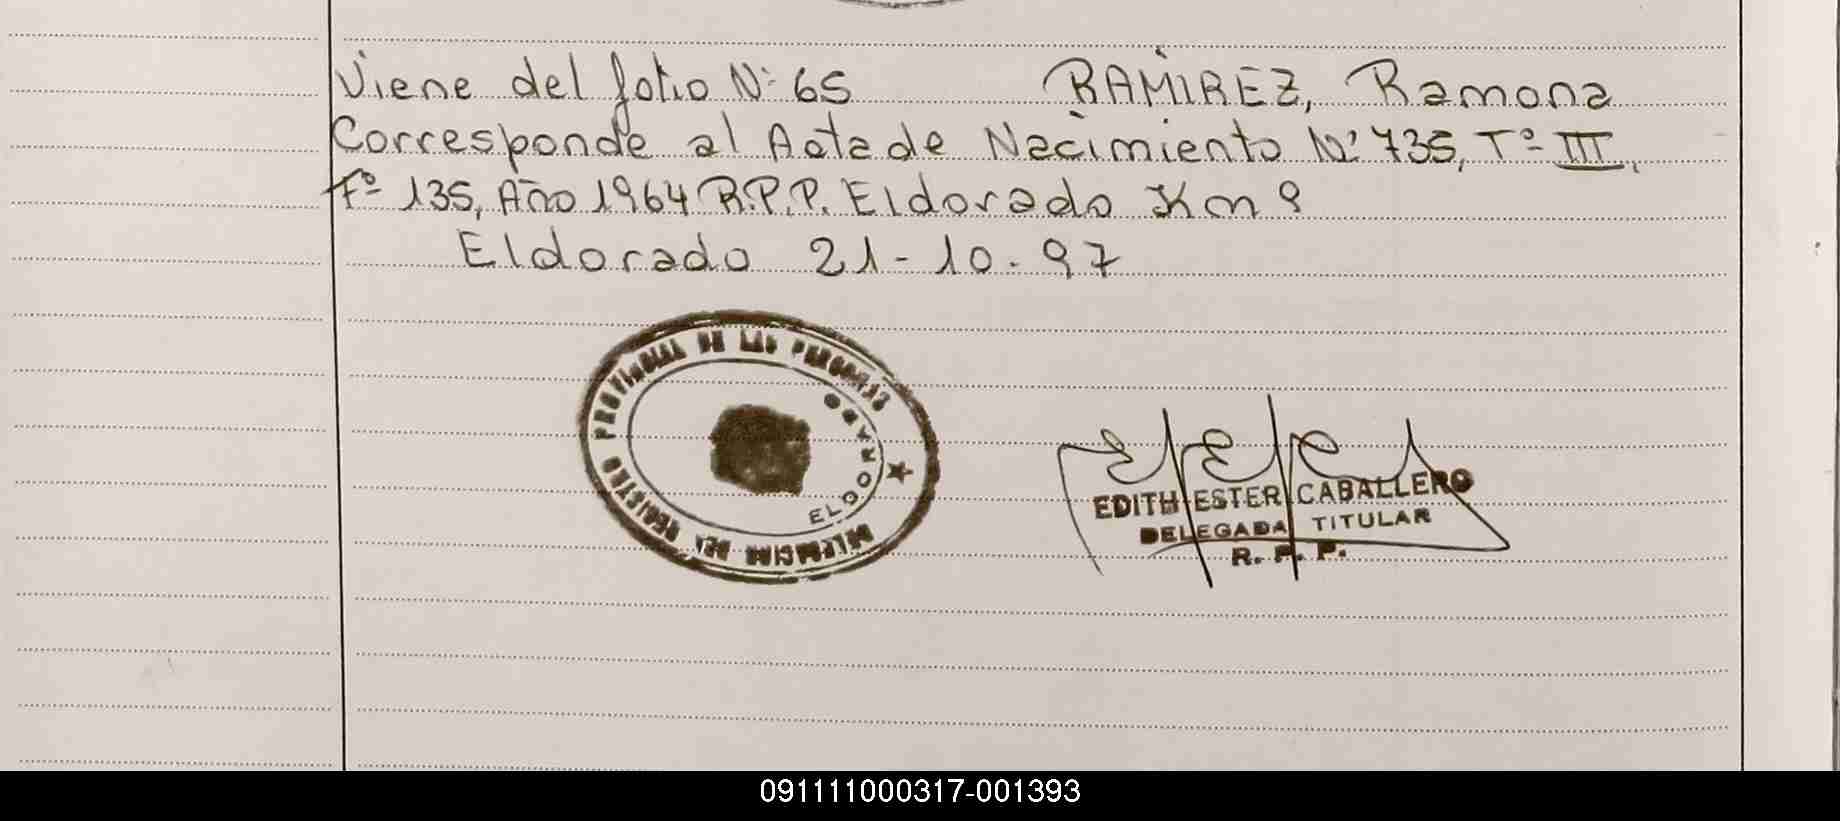 Viene del folio Nº 65 RAMIREZ, Ramona
Corresponde al Acta de Nacimiento Nº 735, Tº III,
Fº 135, Año 1964 R.P.P. Eldorado Km 9
Eldorado 21-10-97
DELEGACION DEL REGISTRO PROVINCIAL DE LAS PERSONAS
ELDORADO
EDITH ESTER CABALLERO
DELEGADA TITULAR
R. P. P.
091111000317-001393